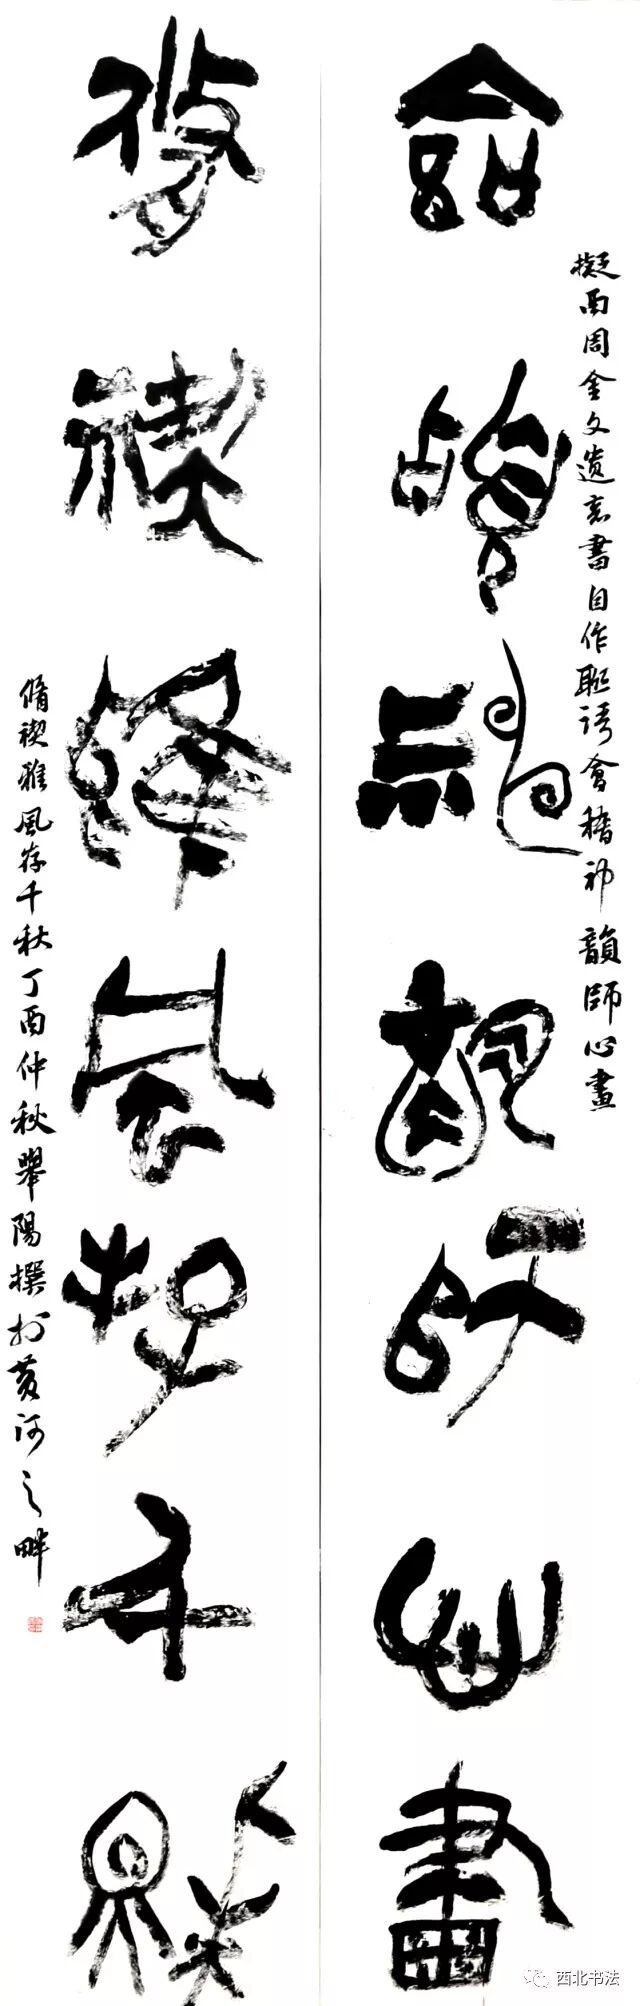 擬西周金文遺意書自作聯語會稽神韻師心畫
會稽神韻師心畫
脩禊雅風存千秋
脩禊雅風存千秋丁酉仲秋舉陽撰於黃河之畔
西北书法